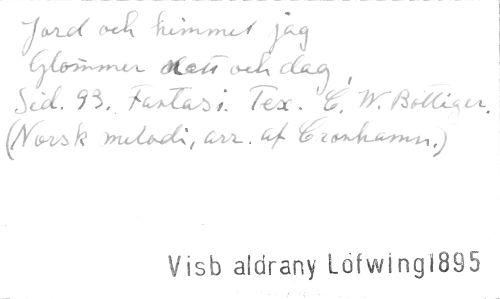 Jord och himmel jag
Glömmer natt och dag,
Sid. 93. Fantasi. Tex. C. W. Böttiger.
(Norsk melodi, arr. af Cronhamn.)
Visb aldrany Löfwing1895